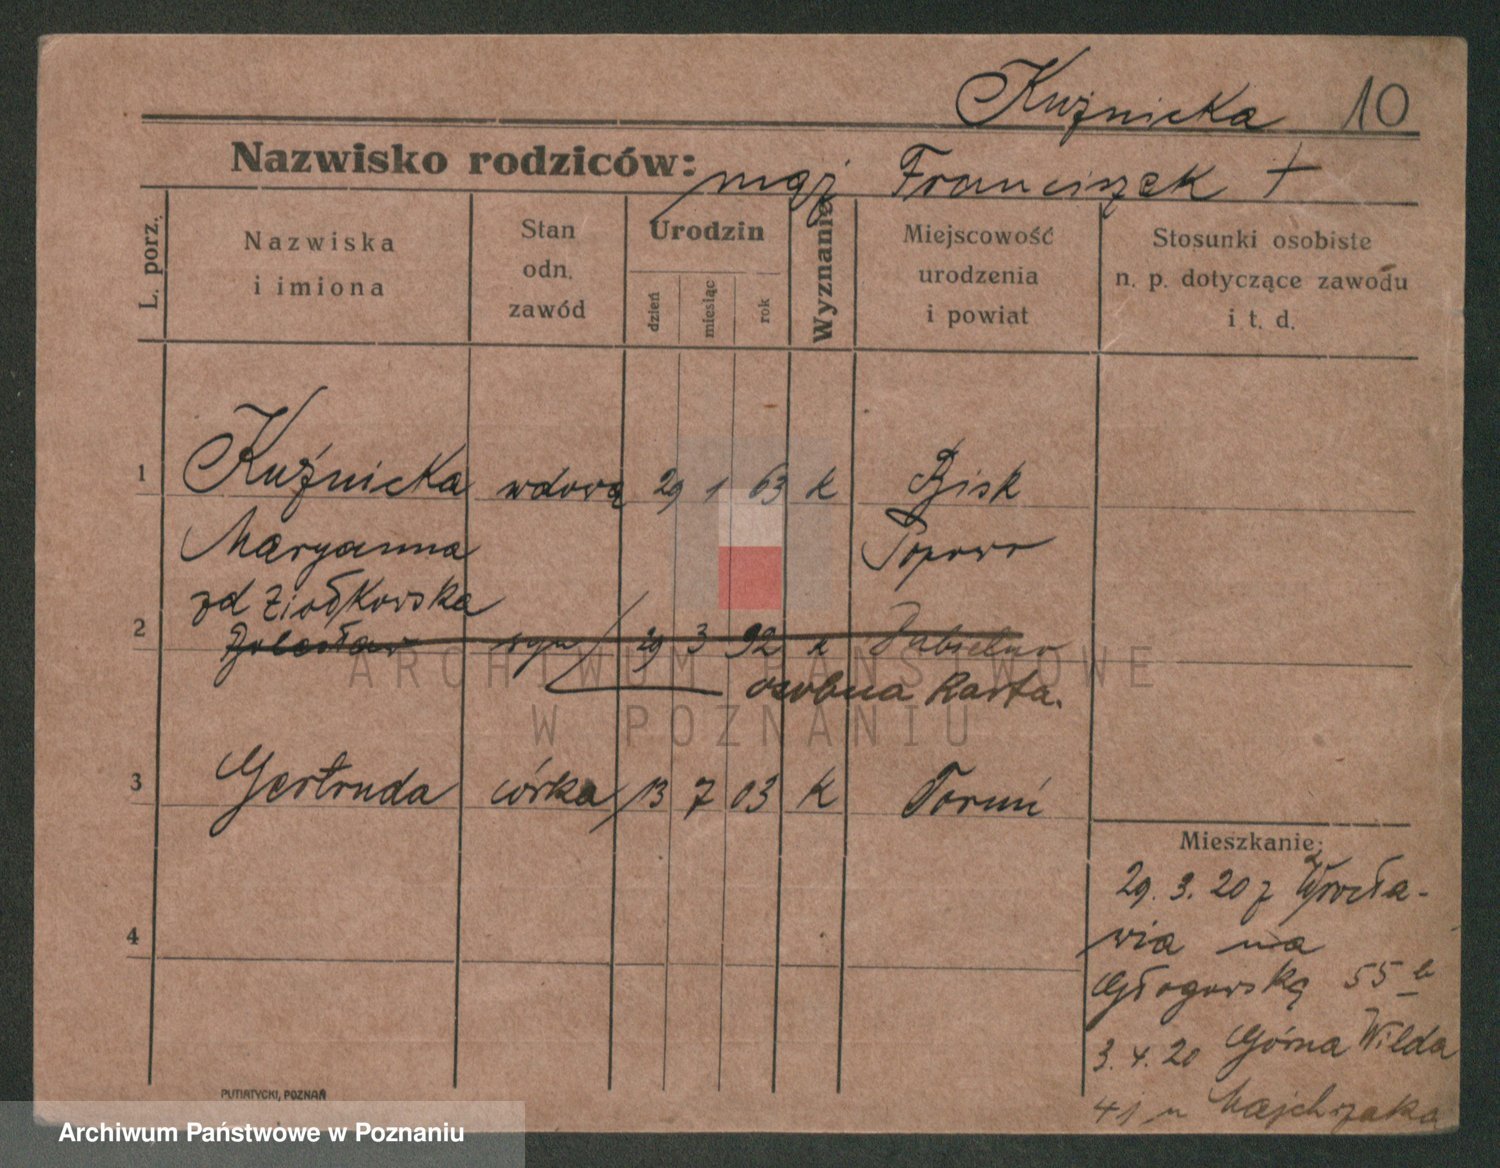 Kuźnicka 10
Nazwisko rodziców: mąż Franciszek +
L. porz.
Nazwiska
i imiona
Stan
odn.
zawód
Urodzin
dzień
miesiąc
rok
Wyznanie
Miejscowość
urodzenia
i powiat
Stosunki osobiste
n. p. dotyczące zawodu
i t. d.
1 Kuźnicka wdowa 29 1 63 k Bisk
Maryanna Popowo
zd Ziołkowska
2 Bolesław syn 29 3 92 k
osobna karta.
3 Gertruda córka 13 7 03 k Toruń
4
Mieszkanie:
29.3.20 z Wrocła-
wia na
Głogowską 55 b
3.4.20 Górna Wilda
41 u Majchrzaka
PUTIATYCKI, POZNAŃ
ARCHIWUM PAŃSTWOWE
W POZNANIU
Archiwum Państwowe w Poznaniu